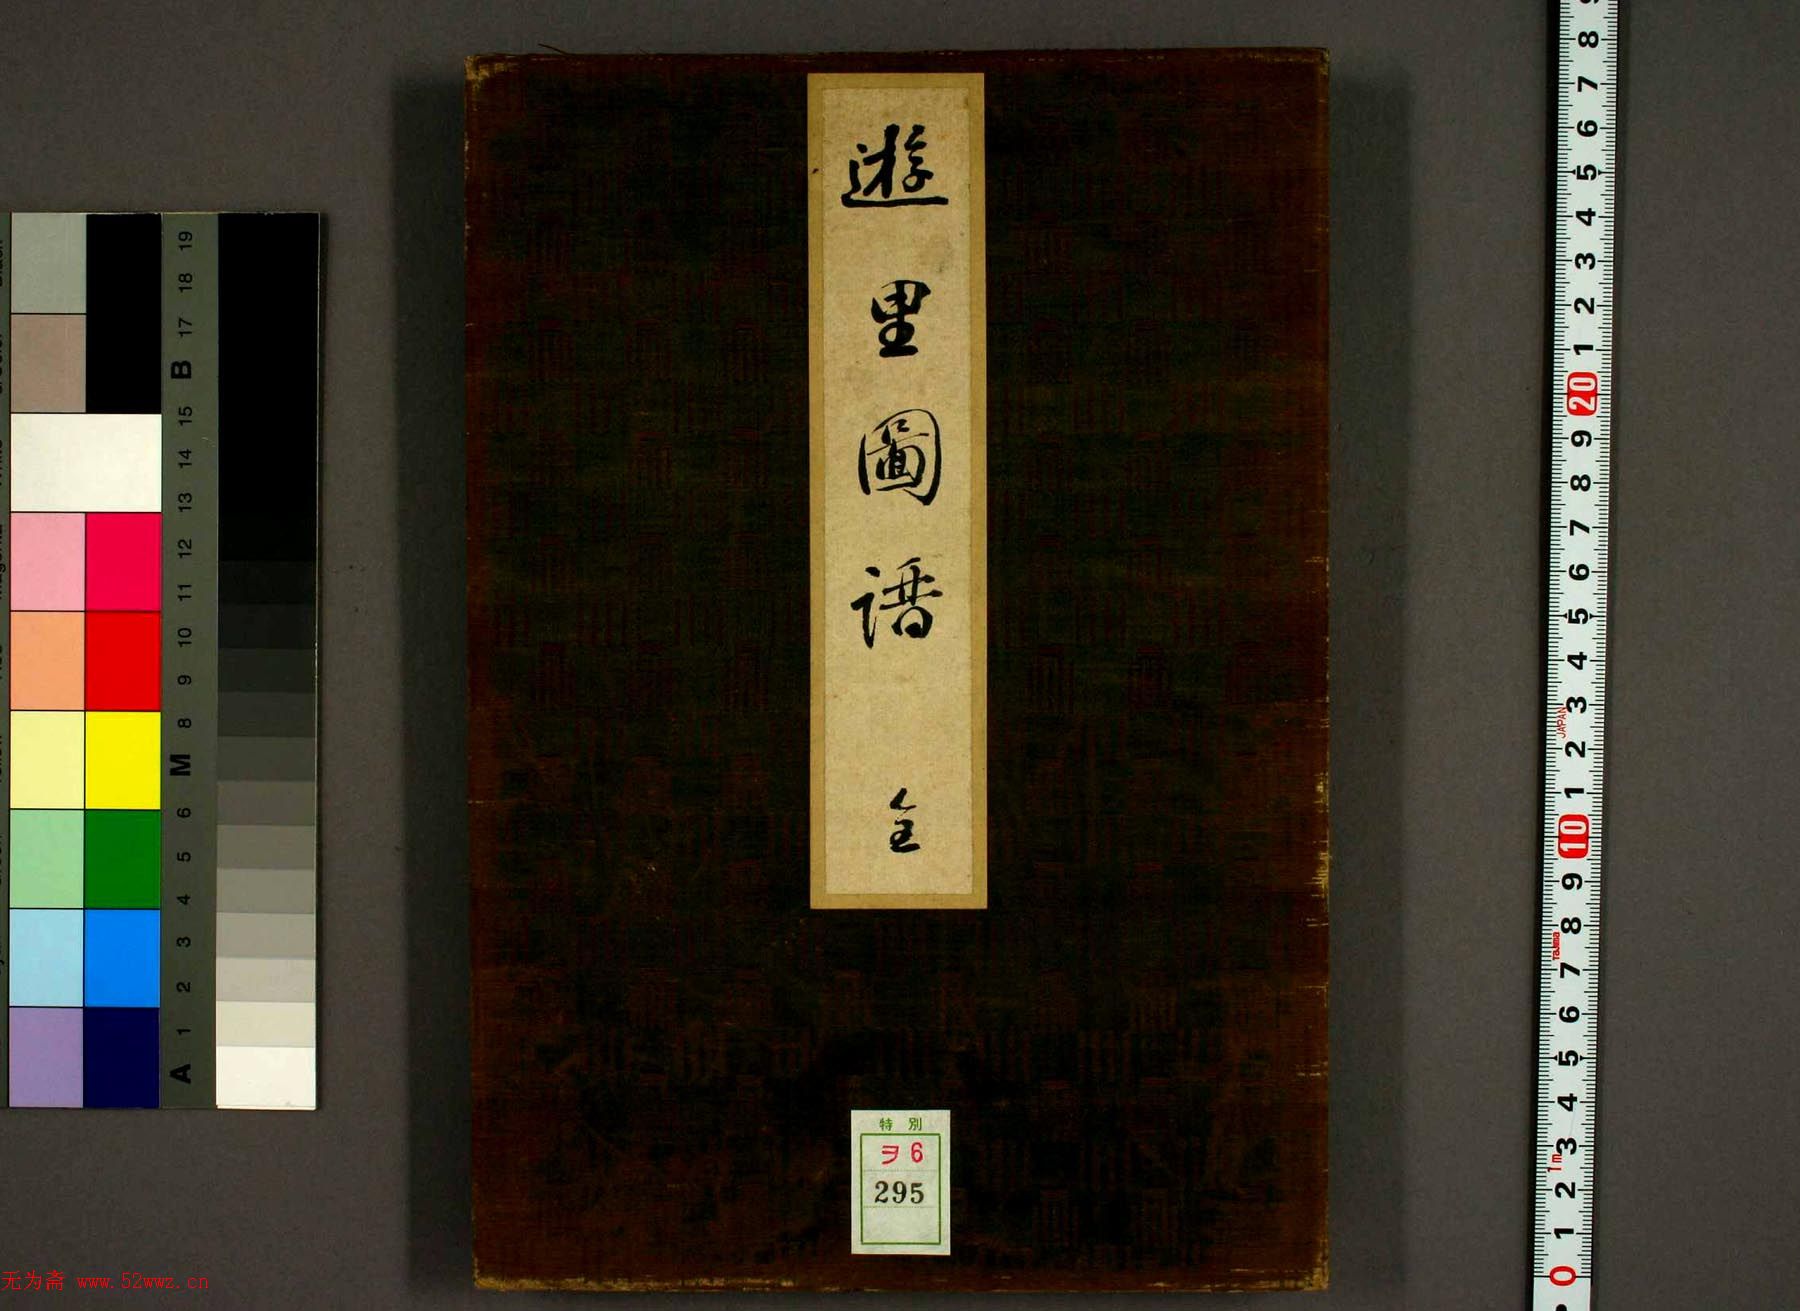 遊里圖譜 全
特別
ヲ6
295
19
18
17
B
15
14
13
12
11
10
9
8
M
6
5
4
3
2
1
A
8
7
6
5
4
3
2
1
20
9
8
7
6
5
4
3
JAPAN
2
1
10
9
8
Tajima
7
6
5
4
3
1m
2
1
0
无为斋 www.52wwz.cn